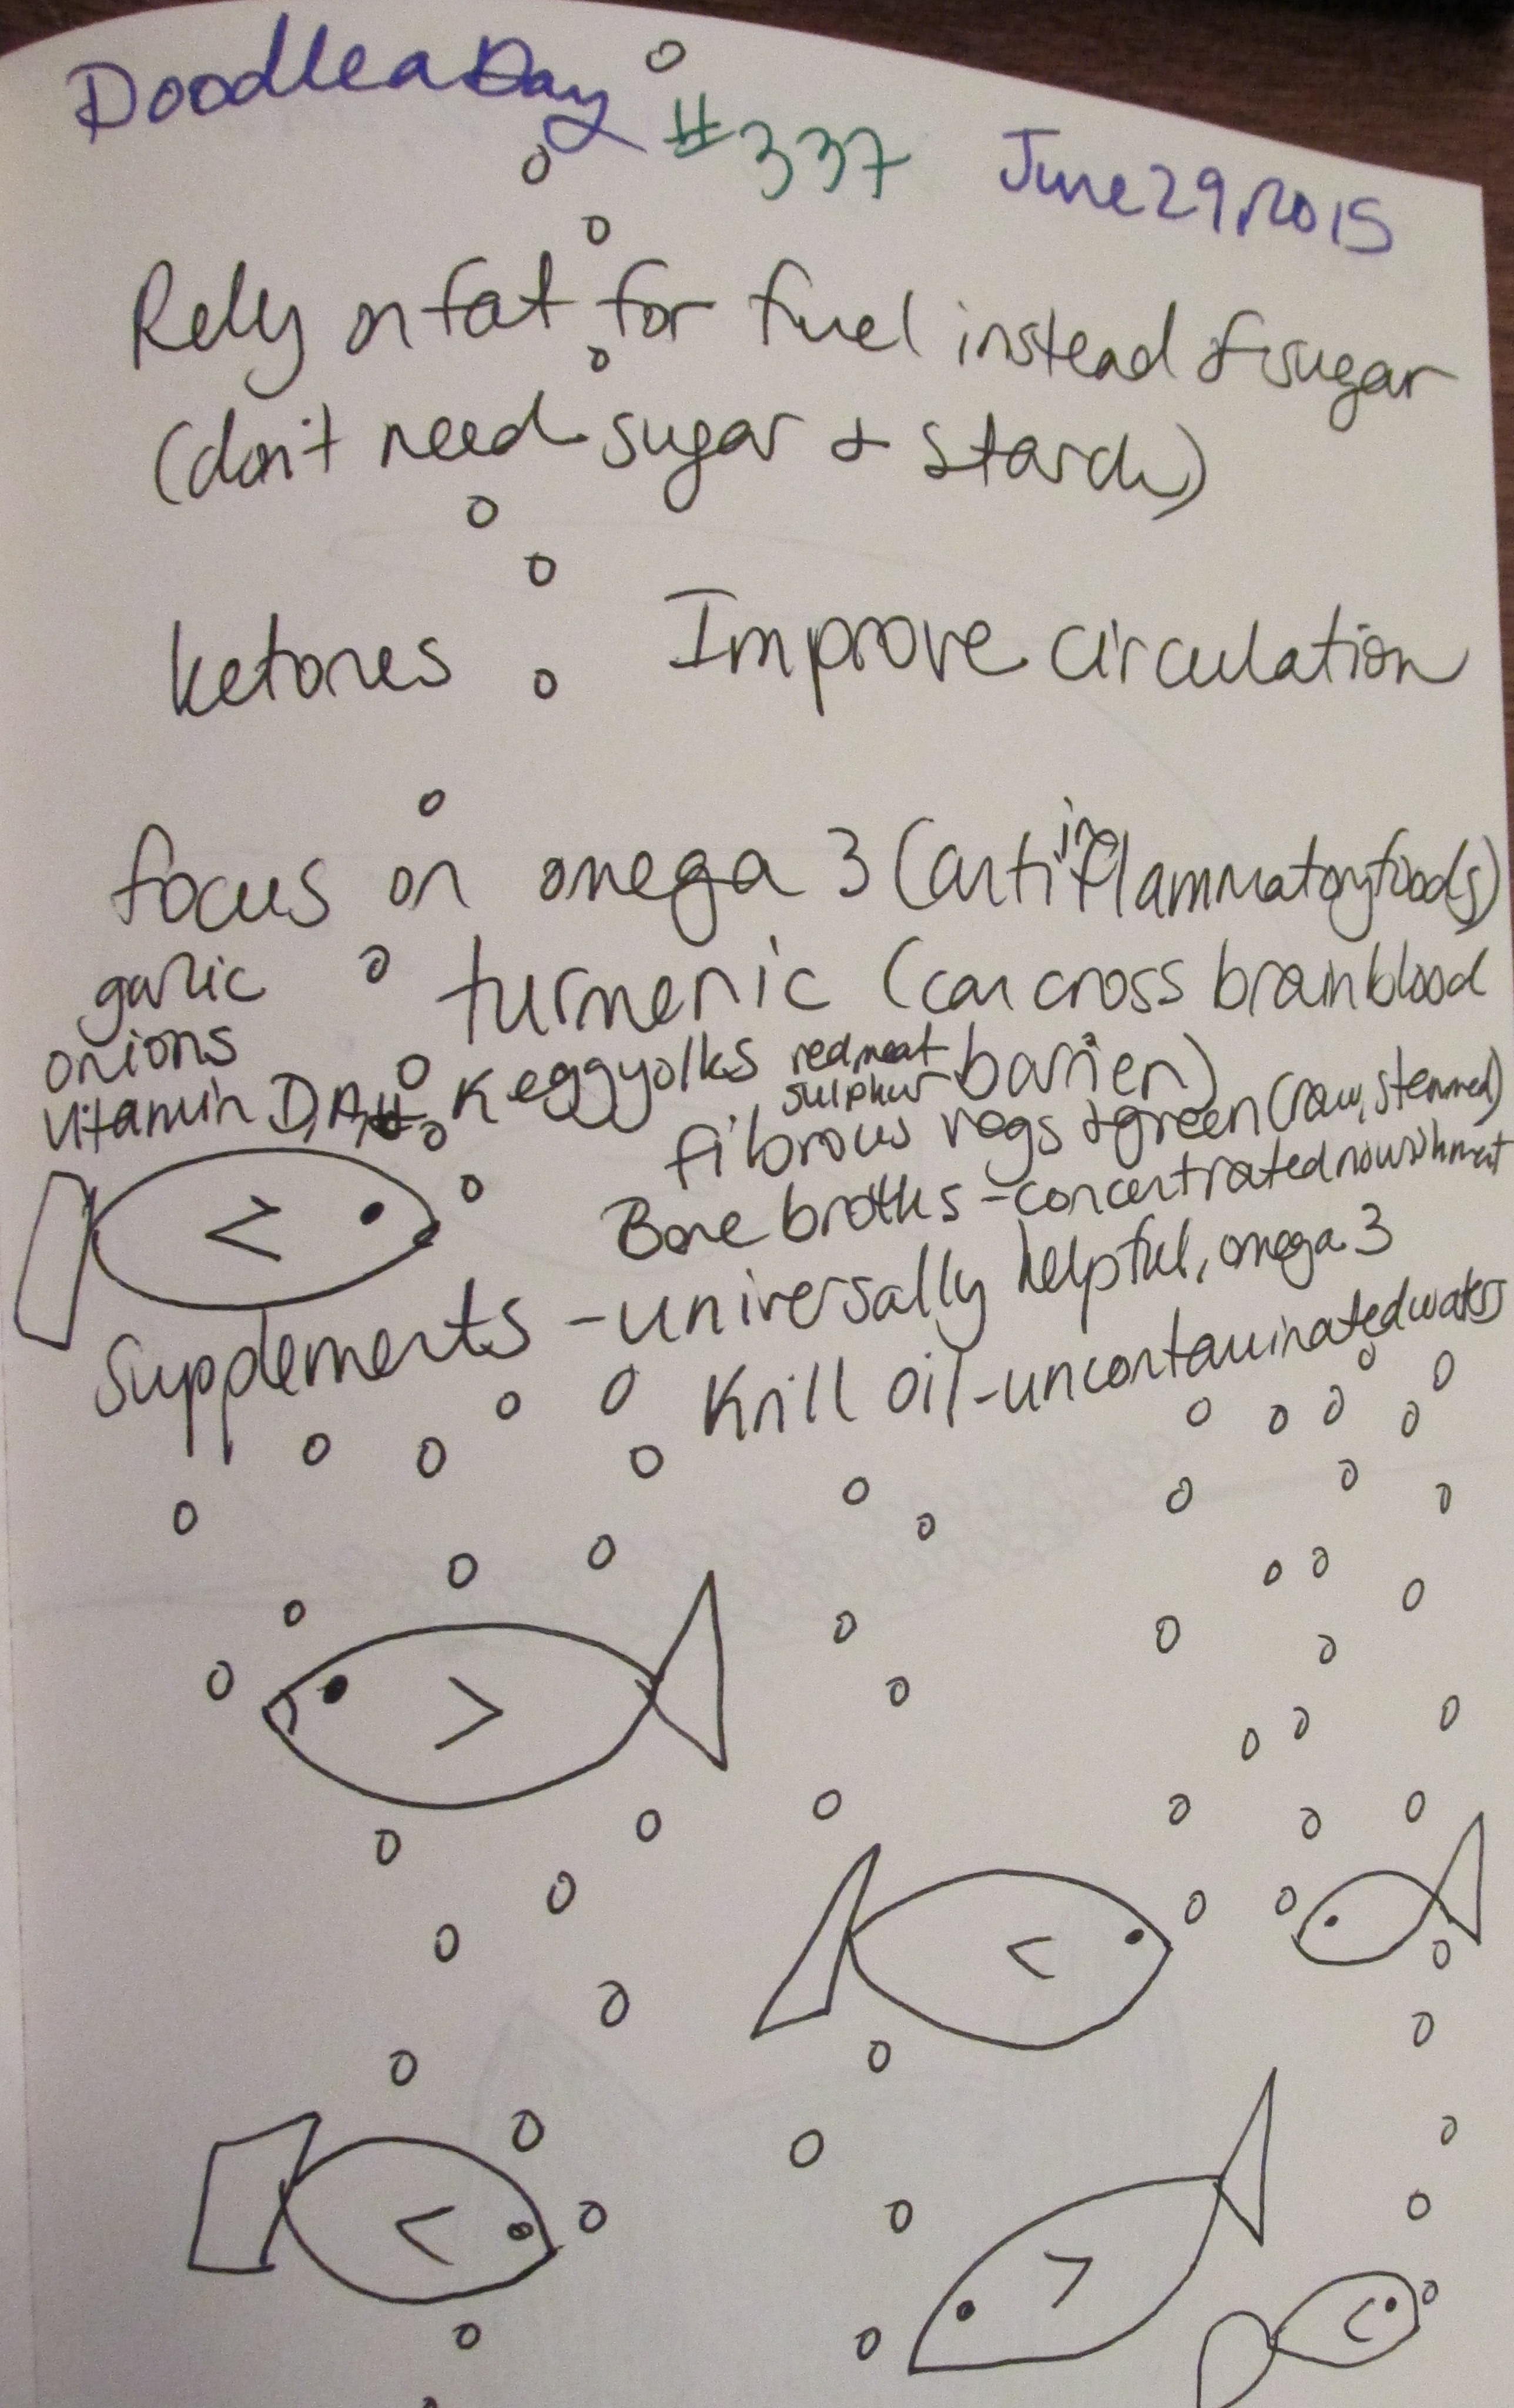 Doodle a Day #337 June 29, 2015
Rely on fat for fuel instead of sugar
(don't need sugar & starch)
ketones Improve circulation
focus on omega 3 (anti inflammatory foods)
garlic turmeric (can cross brain blood
barrier)
onions
Vitamin D, A, K egg yolks red meat
sulphur
fibrous vegs & green (raw, stemmed)
Bone broths - concentrated nourishment
Supplements - universally helpful, omega 3
Krill oil - uncontaminated waters